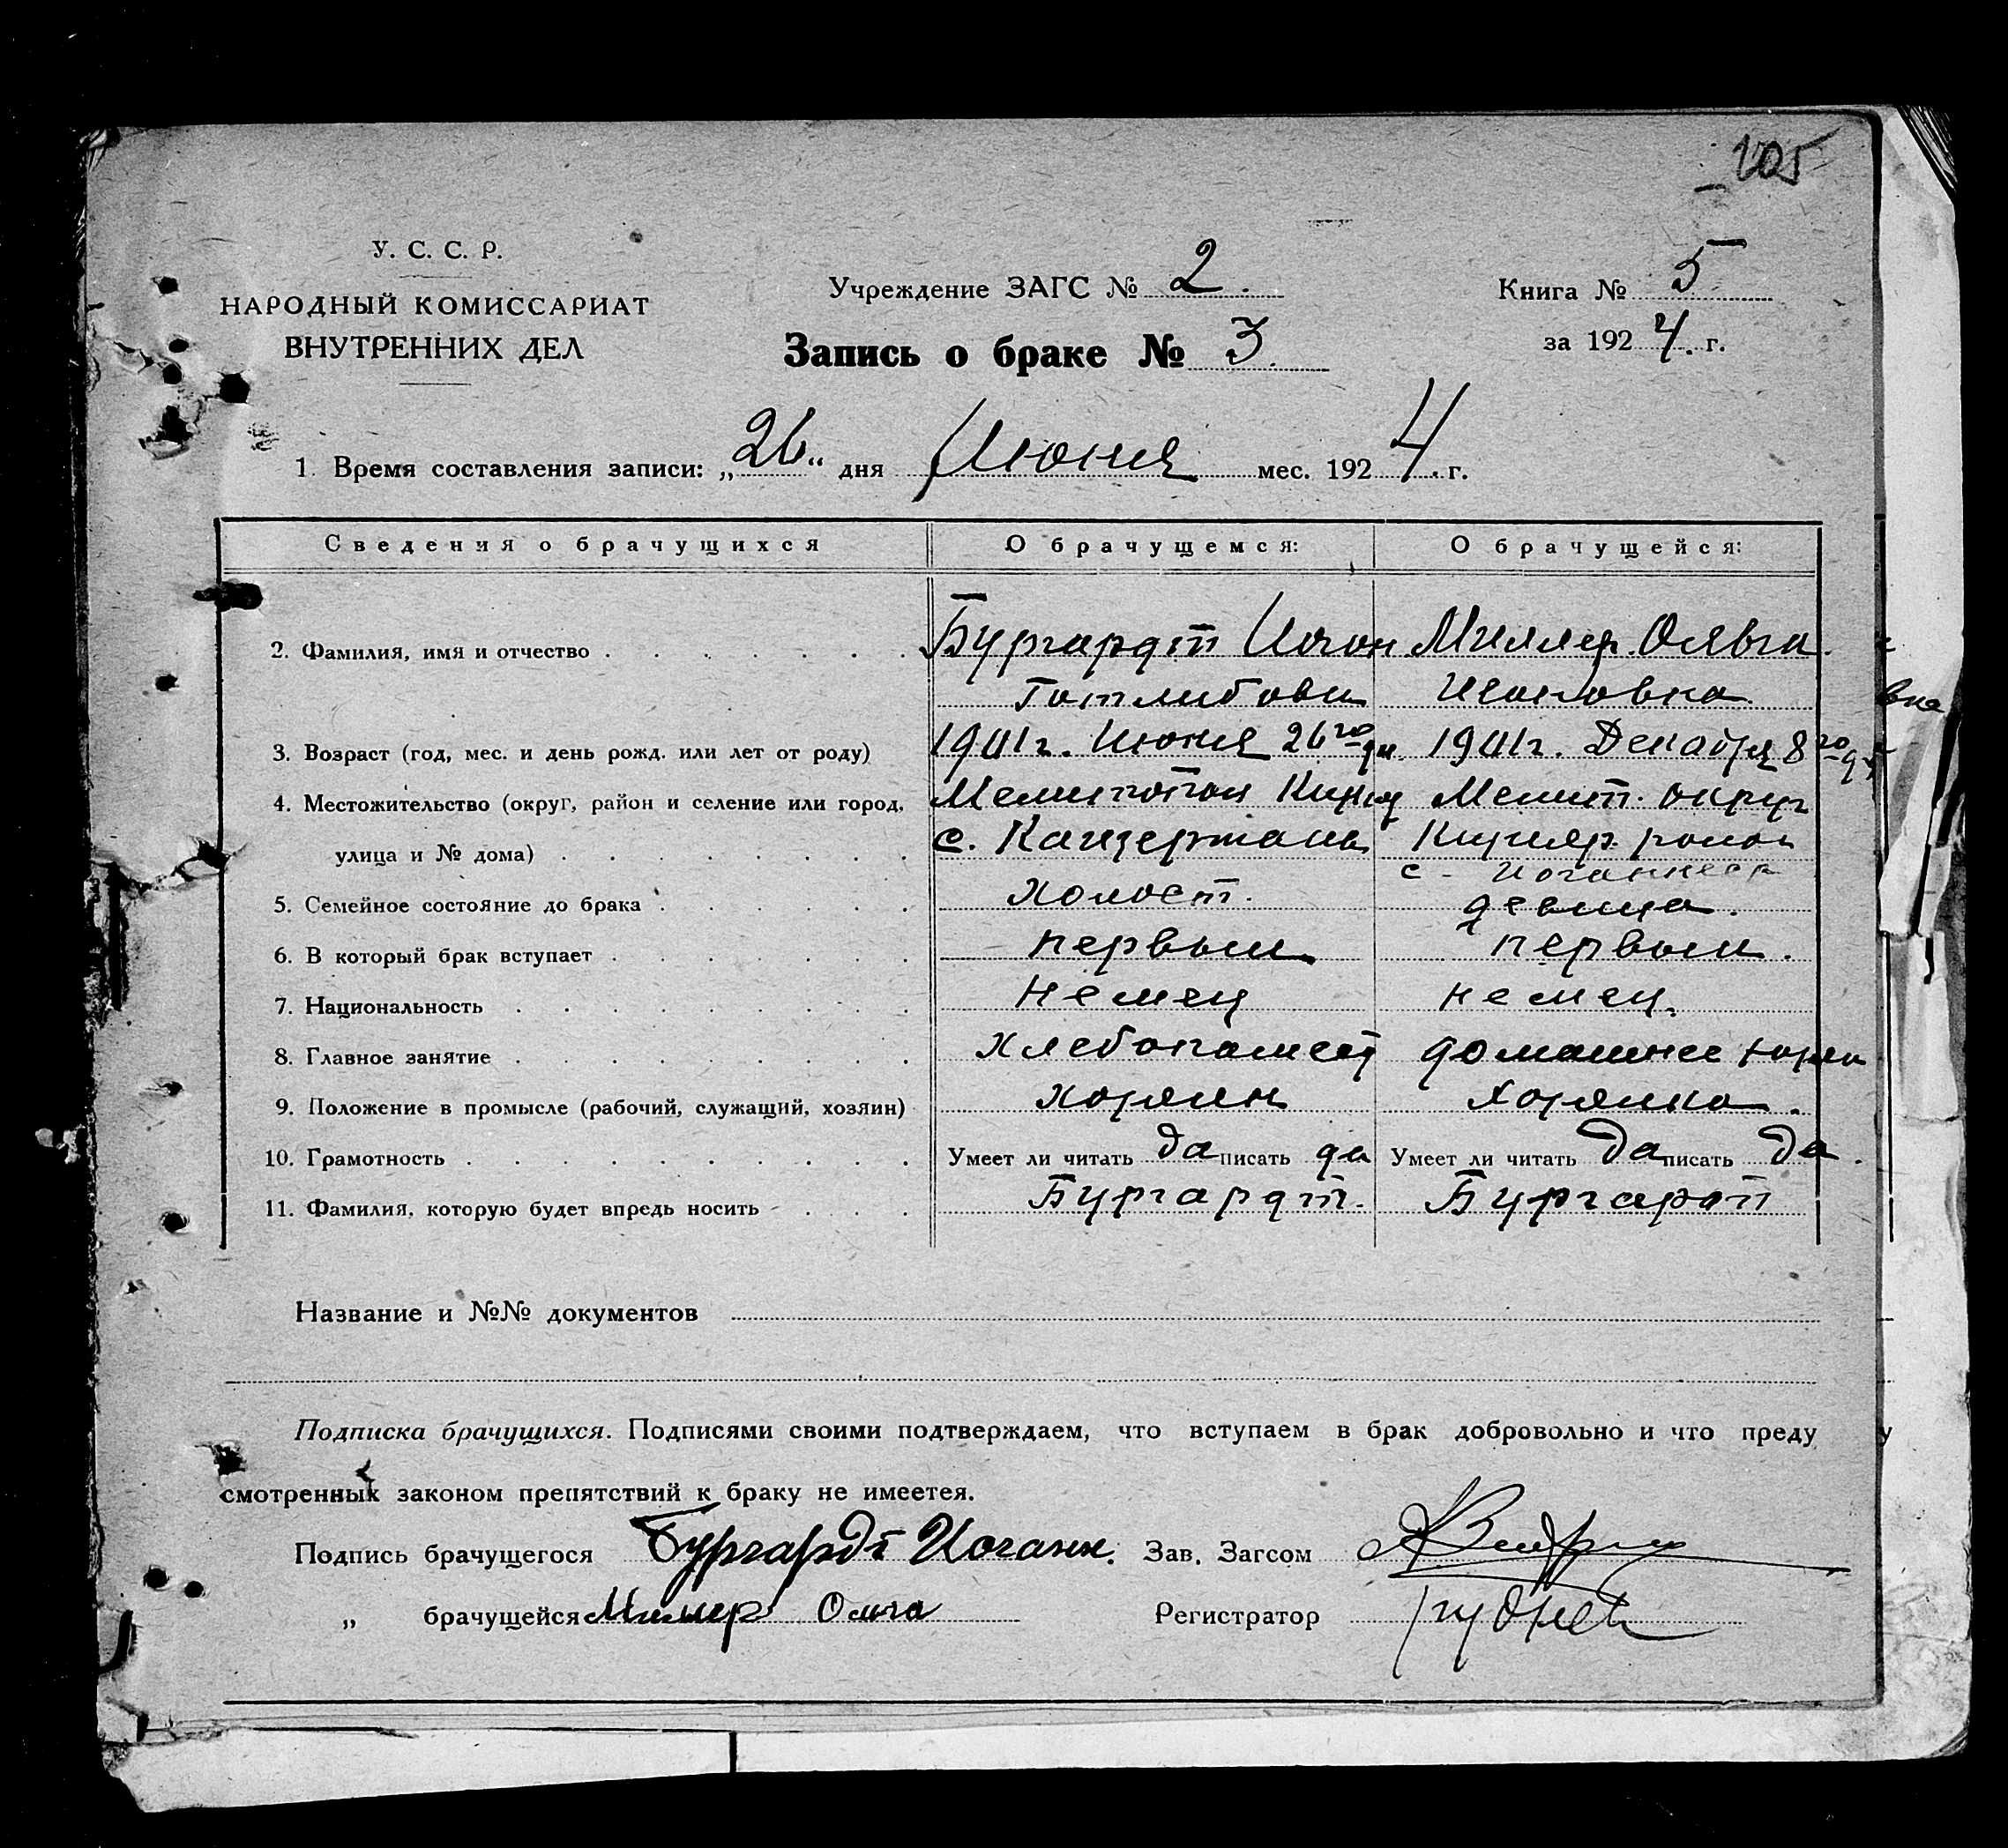 105
У. С. С. Р.
НАРОДНЫЙ КОМИССАРИАТ
ВНУТРЕННИХ ДЕЛ
Учреждение ЗАГС № 2.
Книга № 5
за 1924. г.
Запись о браке № 3.
1. Время составления записи: „26" дня Июня мес. 1924. г.
Сведения о брачущихся О брачущемся: О брачущейся:
2. Фамилия, имя и отчество Бургардт Иоган Миллер Ольга
Готлибови Исаковна
3. Возраст (год, мес. и день рожд. или лет от роду) 1901г. Июня 26го дн. 1901г. Декабря 8го
4. Местожительство (округ, район и селение или город, Мелитопол Мелит. округ
улица и № дома) с. район
с.
5. Семейное состояние до брака холост. девица.
6. В который брак вступает первый первый.
7. Национальность немец немец.
8. Главное занятие хлебопашест домашнее
9. Положение в промысле (рабочий, служащий, хозяин) хозяин Хозяика.
10. Грамотность Умеет ли читать да писать да Умеет ли читать да писать да.
11. Фамилия, которую будет впредь носить Бургардт. Бургардт
Название и №№ документов
Подписка брачущихся. Подписями своими подтверждаем, что вступаем в брак добровольно и что преду
смотренных законом препятствий к браку не имеетея.
Подпись брачущегося Бургардт Иоганн. Зав. Загсом
„ брачущейся Миллер Ольга Регистратор